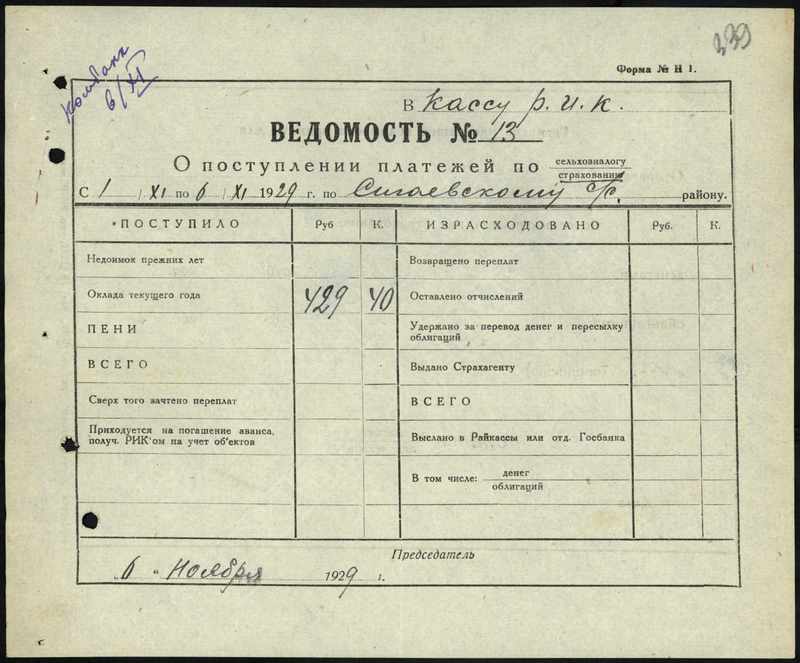 339
6/XI
Форма № Н 1.
В Кассу р. и. к.
ВЕДОМОСТЬ № 13
О поступлении платежей по сельхозналогу
страхованию
С 1 / XI по 6 / XI 1929 г. по Сигаевскому с/с. району.
ПОСТУПИЛО Руб К. ИЗРАСХОДОВАНО Руб. К.
Недоимок прежних лет Возвращено переплат
Оклада текущего года 429 40 Оставлено отчислений
ПЕНИ Удержано за перевод денег и пересылку
облигаций
ВСЕГО Выдано Страхагенту
Сверх того зачтено переплат ВСЕГО
Приходуется на погашение аванса, Выслано в Райкассы или отд. Госбанка
получ. РИК'ом на учет об'ектов
В том числе: денег
облигаций
Председатель
„6 " Ноября 1929 г.